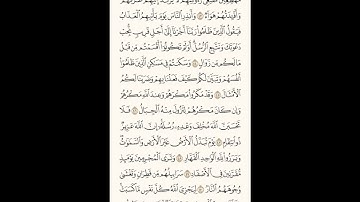 مُهْطِعِينَ مُقْنِعِى رُءُوسِهِمْ لَا يَرْتَدُّ إِلَيْهِمْ طَرْفُهُمْ
وَأَفْـِٔدَتُهُمْ هَوَآءٌ ۝ وَأَنذِرِ ٱلنَّاسَ يَوْمَ يَأْتِيهِمُ ٱلْعَذَابُ
فَيَقُولُ ٱلَّذِينَ ظَلَمُوا۟ رَبَّنَآ أَخِّرْنَآ إِلَىٰٓ أَجَلٍ قَرِيبٍ نُّجِبْ
دَعْوَتَكَ وَنَتَّبِعِ ٱلرُّسُلَ ۗ أَوَلَمْ تَكُونُوٓا۟ أَقْسَمْتُم مِّن قَبْلُ
مَا لَكُم مِّن زَوَالٍ ۝ وَسَكَنتُمْ فِى مَسَـٰكِنِ ٱلَّذِينَ ظَلَمُوٓا۟
أَنفُسَهُمْ وَتَبَيَّنَ لَكُمْ كَيْفَ فَعَلْنَا بِهِمْ وَضَرَبْنَا لَكُمُ
ٱلْأَمْثَالَ ۝ وَقَدْ مَكَرُوا۟ مَكْرَهُمْ وَعِندَ ٱللَّهِ مَكْرُهُمْ
وَإِن كَانَ مَكْرُهُمْ لِتَزُولَ مِنْهُ ٱلْجِبَالُ ۝ فَلَا
تَحْسَبَنَّ ٱللَّهَ مُخْلِفَ وَعْدِهِۦ رُسُلَهُۥٓ ۗ إِنَّ ٱللَّهَ عَزِيزٌ
ذُو ٱنتِقَامٍ ۝ يَوْمَ تُبَدَّلُ ٱلْأَرْضُ غَيْرَ ٱلْأَرْضِ وَٱلسَّمَـٰوَٰتُ
وَبَرَزُوا۟ لِلَّهِ ٱلْوَٰحِدِ ٱلْقَهَّارِ ۝ وَتَرَى ٱلْمُجْرِمِينَ يَوْمَئِذٍ
مُّقَرَّنِينَ فِى ٱلْأَصْفَادِ ۝ سَرَابِيلُهُم مِّن قَطِرَانٍ وَتَغْشَىٰ
وُجُوهَهُمُ ٱلنَّارُ ۝ لِيَجْزِىَ ٱللَّهُ كُلَّ نَفْسٍ مَّا كَسَبَتْ